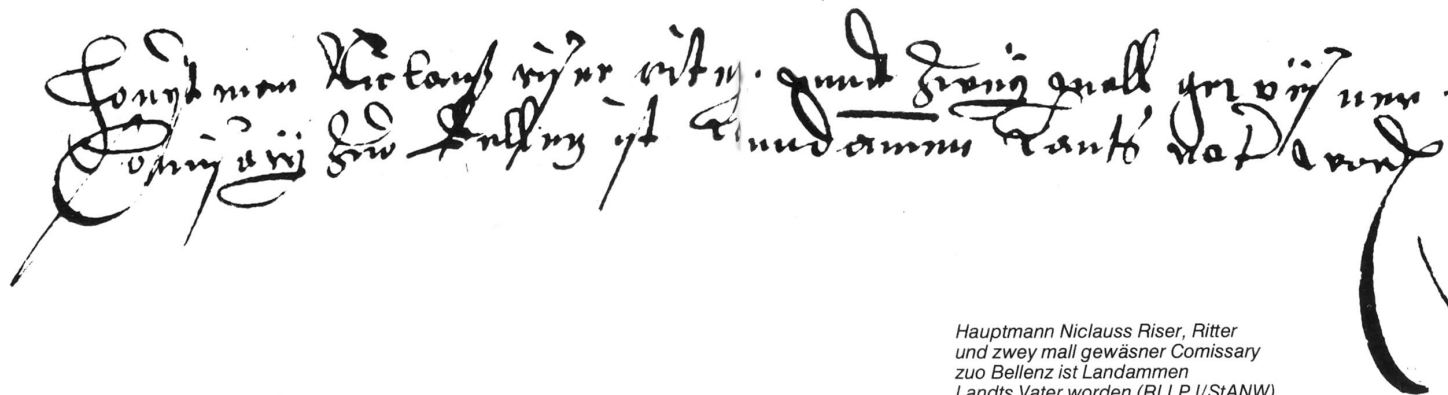 Houptman Niclauß riser riter. unnd zweÿ mall gewësner
Comisary zuo Bellentz ist Lanndamen Lants vater word
Hauptmann Niclauss Riser, Ritter
und zwey mall gewäsner Comissary
zuo Bellenz ist Landammen
Landts Vater worden (RLLP I/StANW)